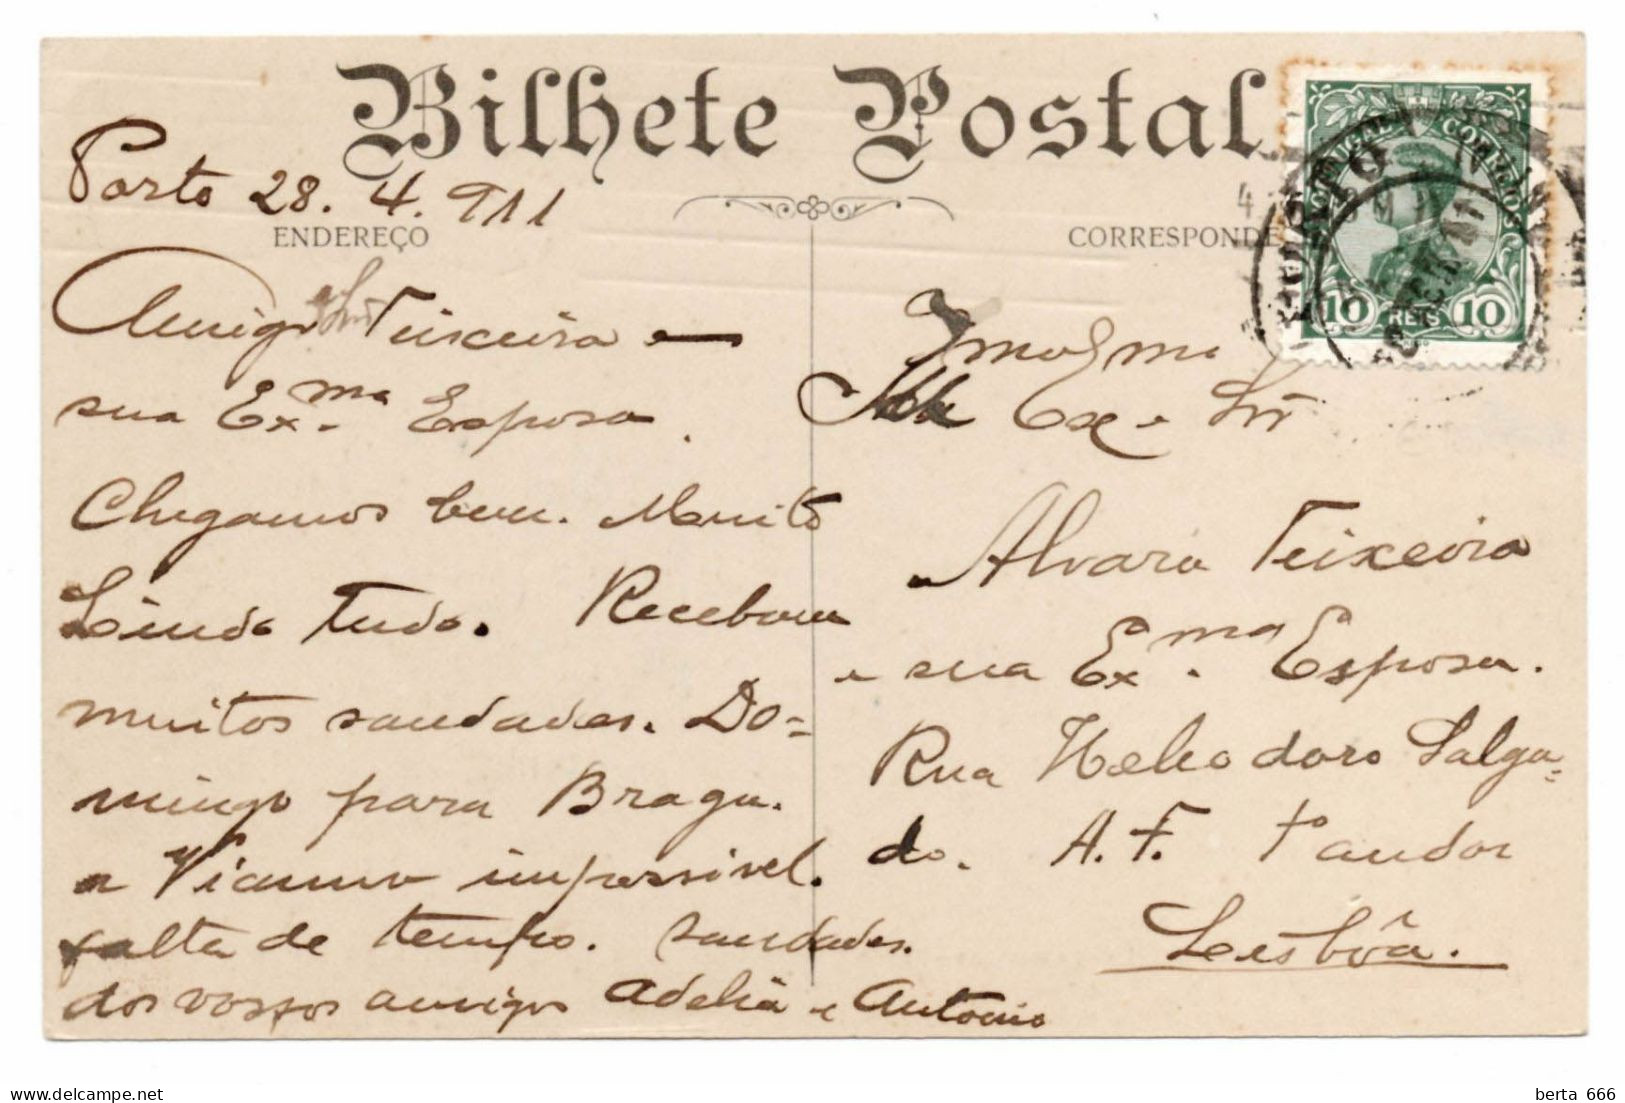 Bilhete Postal
Porto 28.4.911
ENDEREÇO
CORRESPONDE
PORTUGAL CORREIOS
10 REIS 10
Amigo Teixeira e
sua Ex.ma Esposa.
Chegamos bem. Muito
Lindo tudo. Recebam
muitos saudades. Do=
mingo para Braga.
a Vianna impossivel.
falta de tempo. Saudades.
dos vossos amigos Adelia e Antonio
Ex. Snr
Alvaro Teixeira
e sua Ex.ma Esposa.
Rua Heliodoro Salga=
do. A. F. 1º andar
Lisbôa.
berta 666